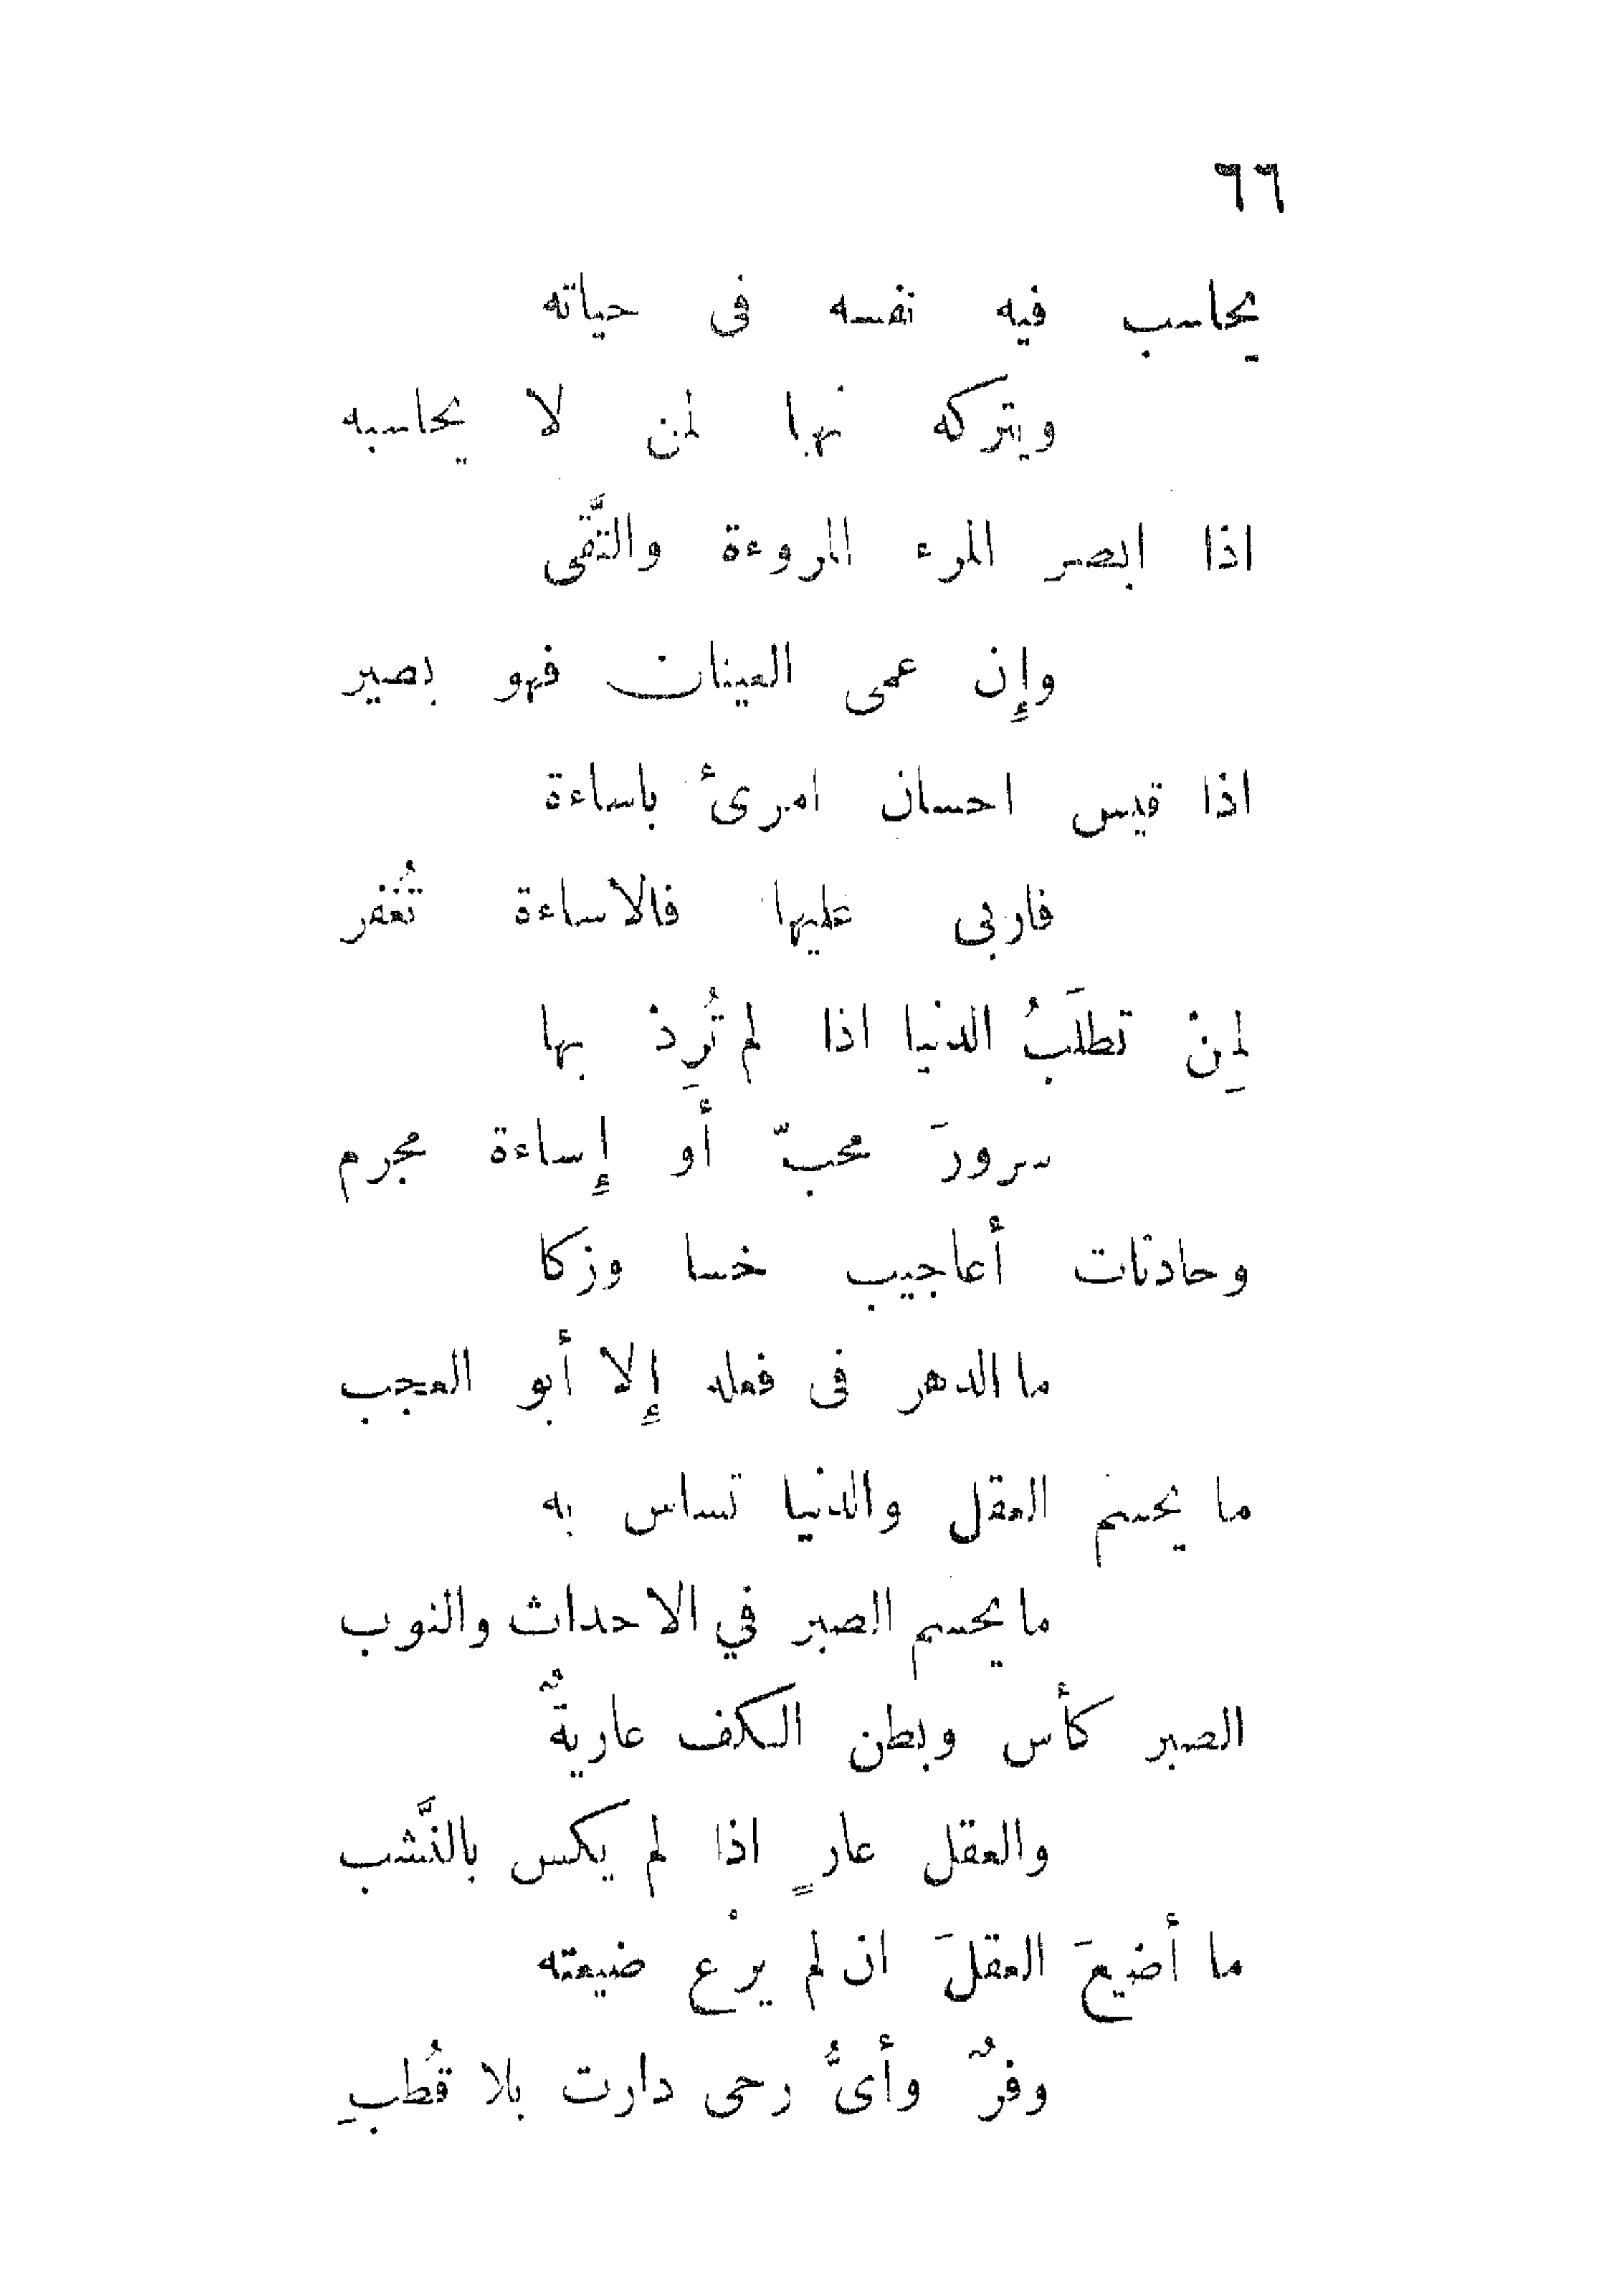 ٦٦
يحاسب فيه نفسه فى حياته
ويتركه نهبا لمن لا يحاسبه
اذا ابصر المرء المروءة والتَّقى
وإِن عمى العينان فهو بصير
اذا قيس احسان امرئ باساءة
فاربى عليها فالاساءة تُغفر
لِمنْ تطلَبُ الدنيا اذا لم تُرِدْ بها
سرورَ محبّ أو إِساءة مجرم
وحادثات أعاجيب خسا وزكا
ما الدهر فى فعله إِلا أبو العجب
ما يحسم العقل والدنيا تساس به
ما يحسم الصبر في الاحداث والنوب
الصبر كأس وبطن الكف عاريةٌ
والعقل عارٍ اذا لم يكس بالنَّشب
ما أضيعَ العقلَ ان لم يرْع ضيعته
وفرٌ وأىُّ رحى دارت بلا قُطبِ